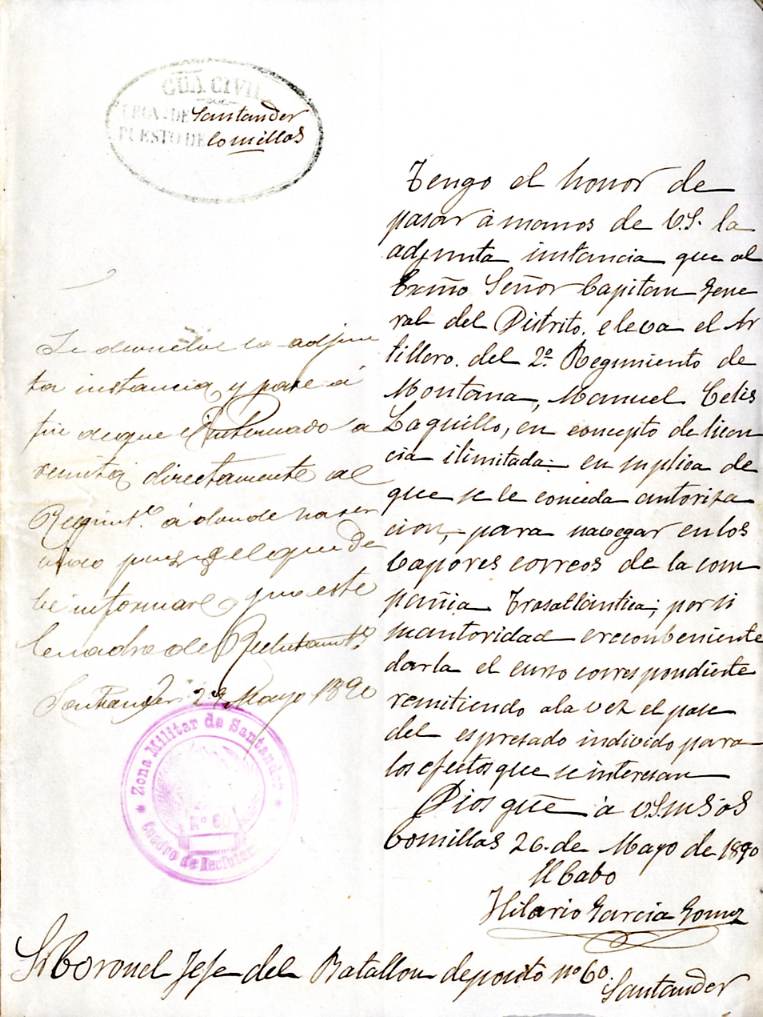 GUA. CIVIL
COM.ª DE Santander
PUESTO DE Comillas
Tengo el honor de
pasar á manos de V.S. la
adjunta instancia que al
Exmo Señor Capitan Gene
ral del Distrito, eleva el Ar
tillero del 2º Regimiento de
Montana, Manuel Celis
Laquillo, en concepto de licen
cia ilimitada en suplica de
que se le conceda autoriza
cion, para navegar en los
Vapores correos de la com
pañia Trasatlántica; por si
su autoridad cree conbeniente
darla el curso correspondiente
remitiendo a la vez el pase
del espresado individo para
los efectos que se interesan
Dios gue á V.S. ms as
Comillas 26 de Mayo de 1890
El Cabo
Hilario Garcia Gomez
Se devuelve la adjun
ta instancia y pase á
fin de que el interesado la
remita directamente al
Regimtº á donde ha ser
vido pues es el que de
be informar y no este
Cuadro de Reclutamtº
Santander 28 Mayo 1890
Zona Militar de Santander
Nº 60
Cuadro de Reclutamº
Sr Coronel Jefe del Batallon deposito nº 60. Santander